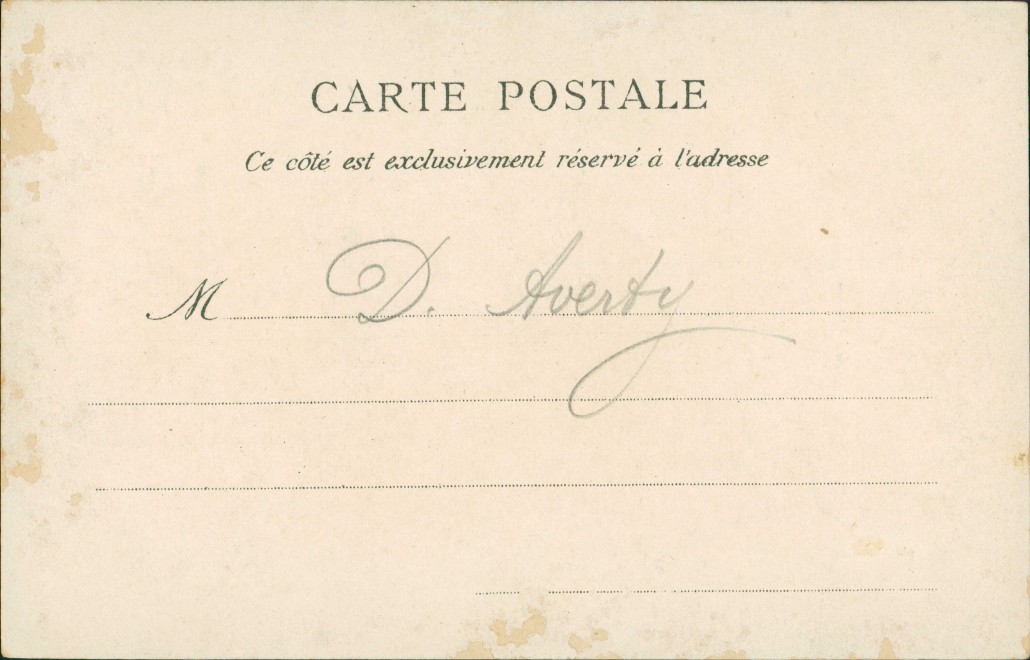 CARTE POSTALE
Ce côté est exclusivement réservé à l'adresse
M D. Averty